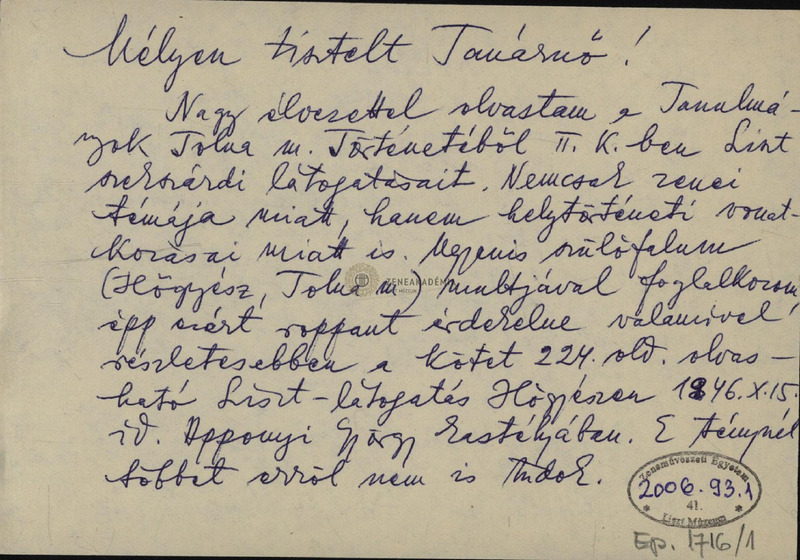 Mélyen tisztelt Tanárnő!
Nagy élvezettel olvastam a Tanulmá-
nyok Tolna m. Történetéből II. K.-ben Liszt
szekszárdi látogatásait. Nemcsak zenei
témája miatt, hanem helytörténeti vonat-
kozásai miatt is. Ugyanis szülőfalum
(Hőgyész, Tolna m) multjával foglalkozom
épp ezért roppant érdekelne valamivel
részletesebben a kötet 224. old. olvas-
ható Liszt-látogatás Hőgyészen 1846. X. 15.
id. Apponyi György kastélyában. E ténynél
többet erről nem is tudok.
ZENEAKADÉMIA
MÚZEUM
Zeneművészeti Egyetem
2006.93.1
41.
Liszt Múzeum
Ep. 1716/1